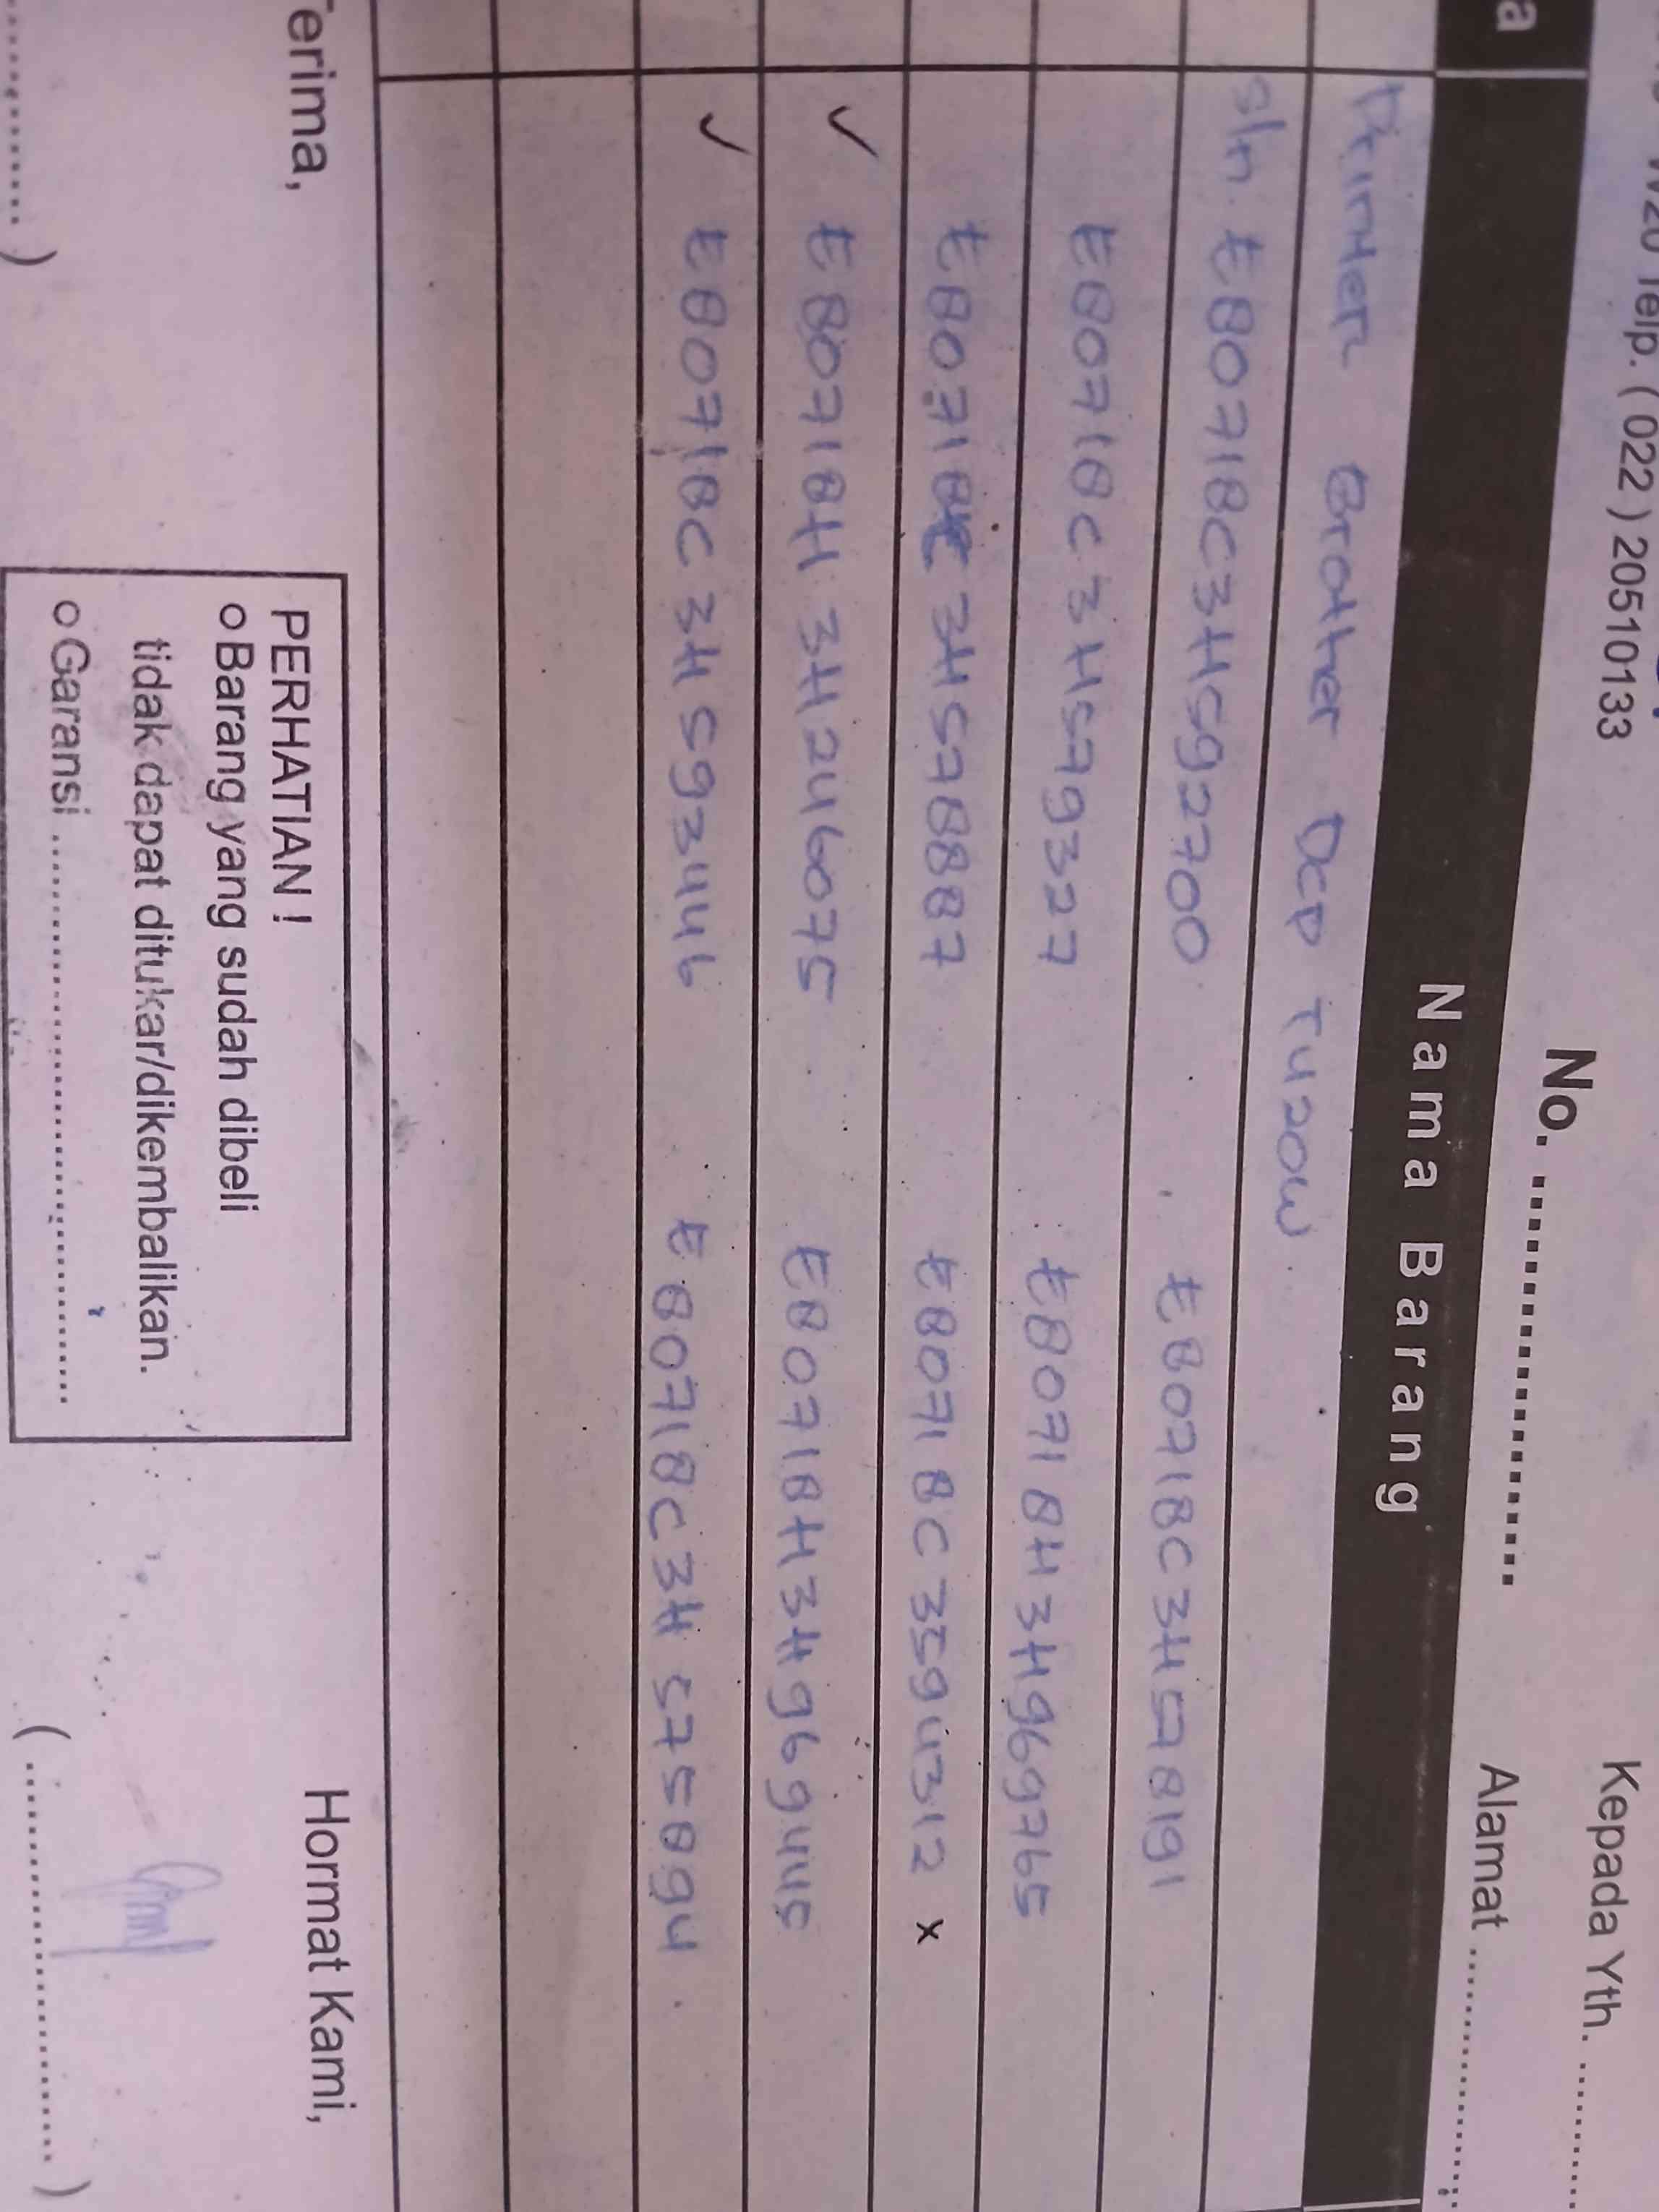 Telp. ( 022 ) 20510133
No. ........................
Kepada Yth. ..........
Alamat ....................
a
Nama Barang
Printer Brother DCP T420W
s/n. E80718C3H592700 E80718C3H578191
E80718C3H579327 E80718H3H969765
E80718C3H578887 E80718C3594312 x
✓ E80718H3H246075 E80718H3H969445
✓ E80718C3H593446 E80718C3H575894
Terima,
PERHATIAN !
o Barang yang sudah dibeli
tidak dapat ditukar/dikembalikan.
o Garansi ........................................
Hormat Kami,
........... )
( ............................ )